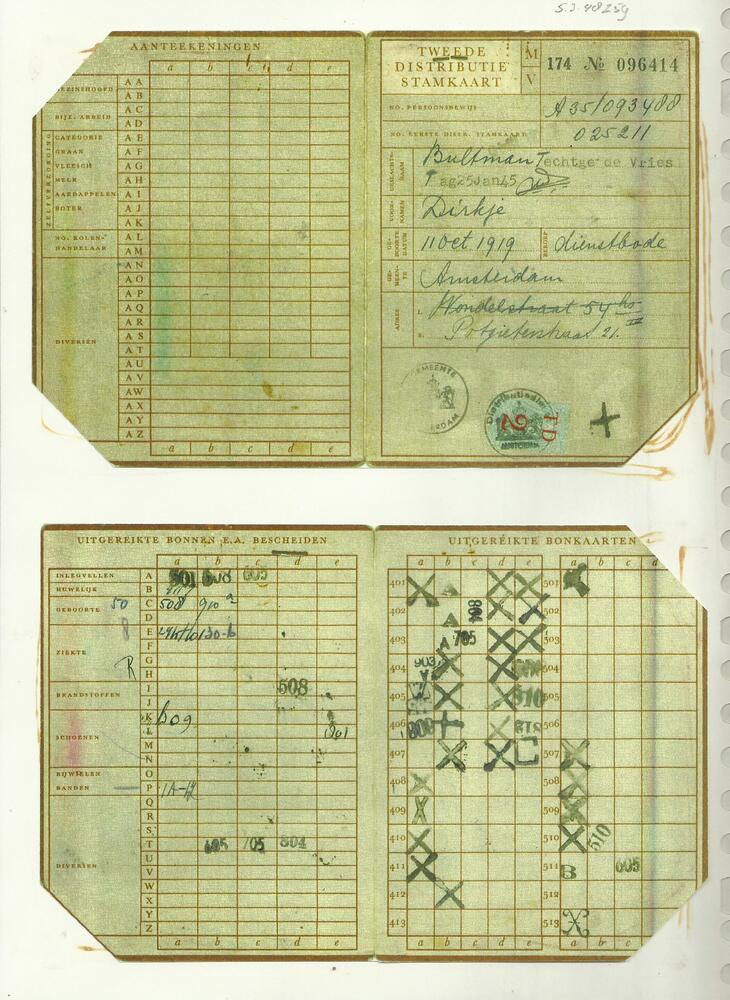 AANTEEKENINGEN
a b c d e
GEZINSHOOFD
BIJZ. ARBEID
ZELFVERZORGING
CATEGORIE
GRAAN
VLEESCH
MELK
AARDAPPELEN
BOTER
NO. KOLEN-
HANDELAAR
DIVERSEN
AA
AB
AC
AD
AE
AF
AG
AH
AI
AJ
AK
AL
AM
AN
AO
AP
AQ
AR
AS
AT
AU
AV
AW
AX
AY
AZ
a b c d e
TWEEDE
DISTRIBUTIE
STAMKAART
M
V
174 № 096414
NO. PERSOONSBEWIJS
A35/093488
NO. EERSTE DISTR. STAMKAART
025211
GESLACHTS-
NAAM
Bultman Techtge de Vries
ag25Jan45
VOOR-
NAMEN
Dirkje
GE-
BOORTE
DATUM
11 Oct 1919
BEROEP
dienstbode
GE-
MEEN-
TE
Amsterdam
ADRES
1. Vondelstraat 54 hs
2. Potgieterstraat 21. III
GEMEENTE
Distributiedienst
AMSTERDAM
TD
2
UITGEREIKTE BONNEN E.A. BESCHEIDEN
a b c d e
INLEGVELLEN
HUWELIJK
GEBOORTE
ZIEKTE
BRANDSTOFFEN
SCHOENEN
RIJWIELEN
BANDEN
DIVERSEN
A 501 508 605
B
C 508 910
D
E
F
G
H
I 508
J
K 609
L
M
N
O
P
Q
R
S
T 605 705 804
U
V
W
X
Y
Z
50
8
R
a b c d e
UITGEREIKTE BONKAARTEN
a b c d e a b c d
401 501
402 804 502
403 705 503
404 903 504
405 510 505
406 506
407 507
408 508
409 509
410 510 510
411 511 B 605
412 512
413 513
a b c d e a b c